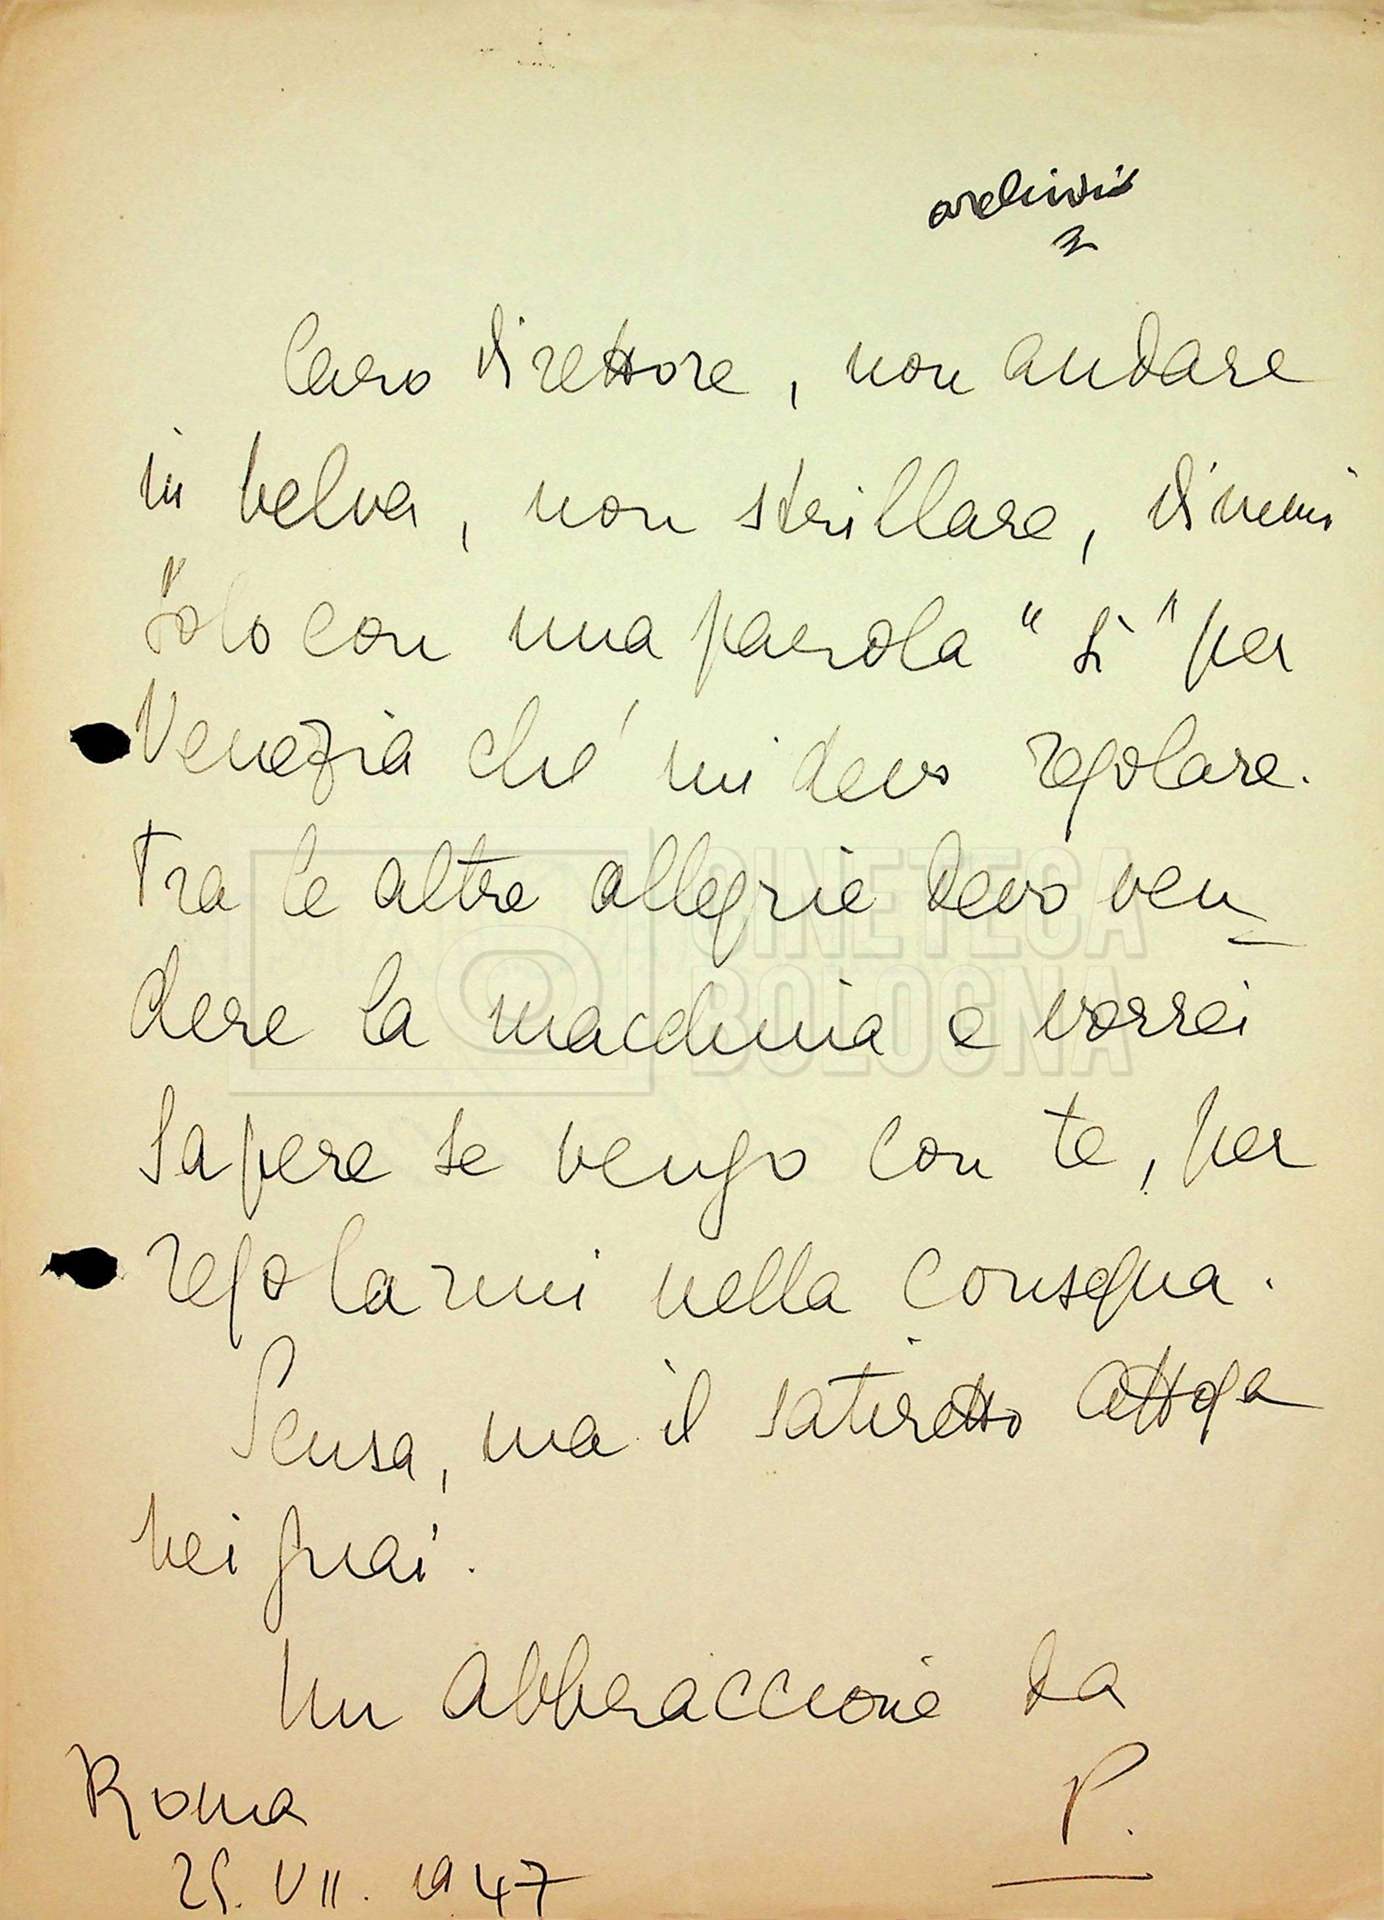 archivio
Caro direttore, non andare
in belva, non strillare, dimmi
solo con una parola "sì" per
Venezia ché mi devo regolare.
Tra le altre allegrie devo ven
dere la macchina e vorrei
sapere se vengo con te, per
regolarmi nella consegna.
Scusa, ma il satiretto affoga
nei guai.
Un abbraccione da
P.
Roma
25. VII. 1947
CINETECA
BOLOGNA